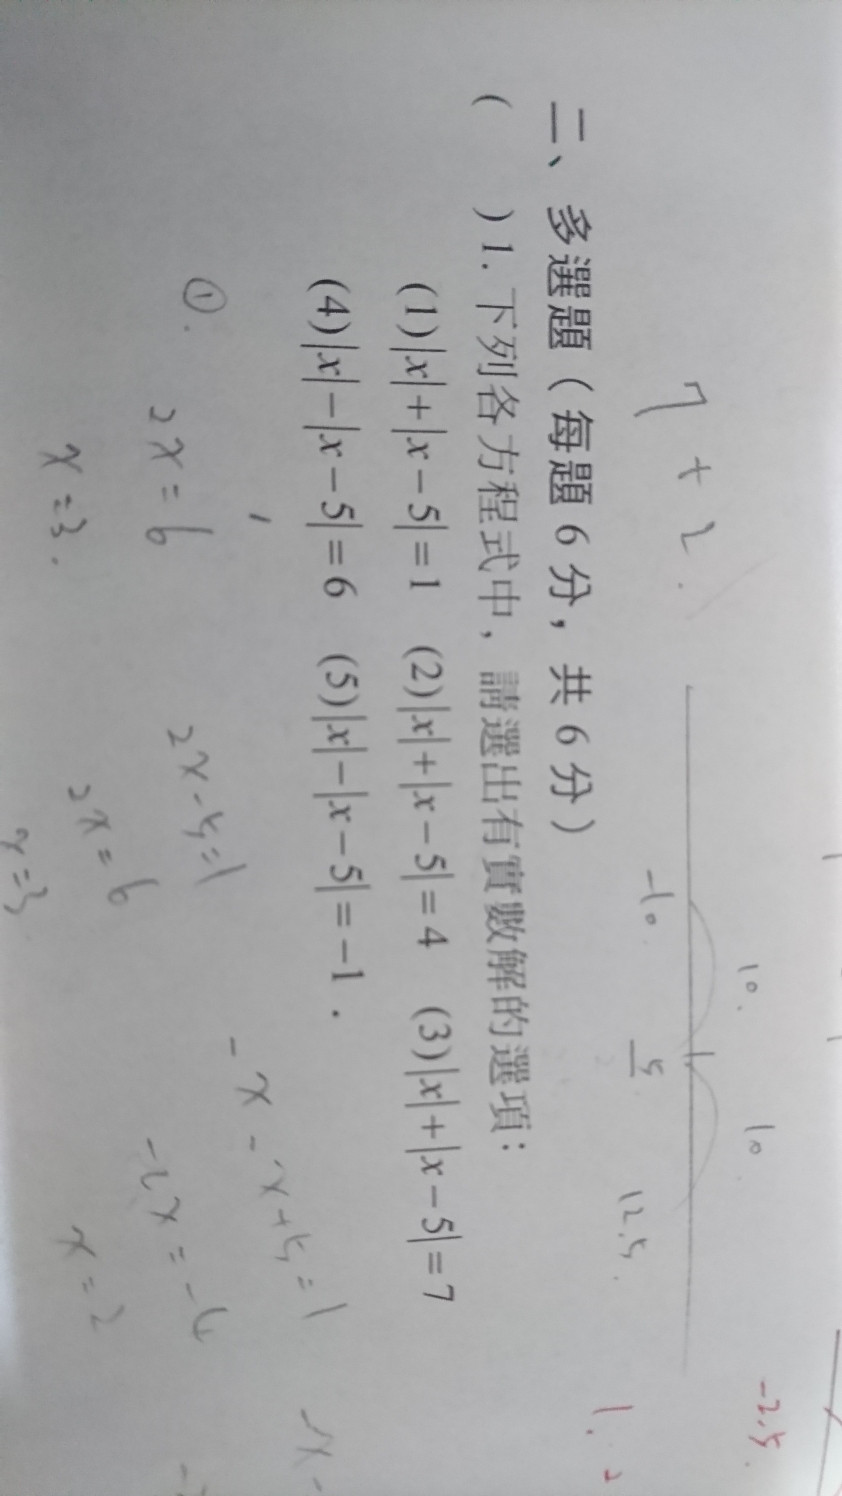 7+2.
10. 10
-10. 5 12.5.
-2.5.
1. 2
二、多選題（每題 6 分，共 6 分）
( ) 1. 下列各方程式中，請選出有實數解的選項：
(1)|x|+|x-5|=1 (2)|x|+|x-5|=4 (3)|x|+|x-5|=7
(4)|x|-|x-5|=6 (5)|x|-|x-5|=-1．
①.
2x=6
x=3.
2x-5=1
2x=6
x=3
-x-x+5=1
x=2